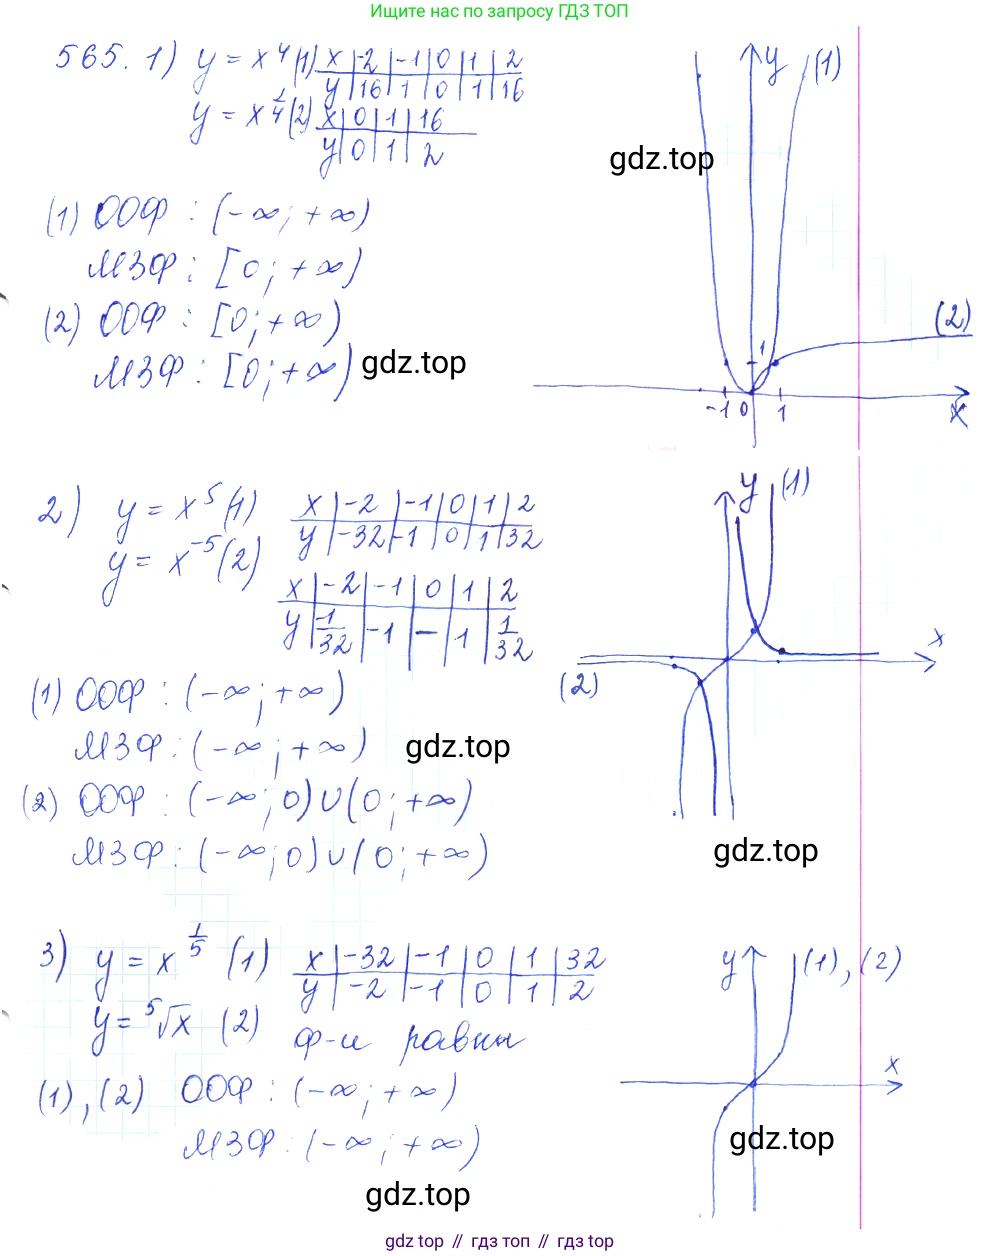 Ищите нас по запросу ГДЗ ТОП
565. 1) y = x⁴ (1)
x | -2 | -1 | 0 | 1 | 2
y | 16 | 1 | 0 | 1 | 16
y = x^(1/4) (2)
x | 0 | 1 | 16
y | 0 | 1 | 2
(1) ООФ : (-∞; +∞)
МЗФ : [0; +∞)
(2) ООФ : [0; +∞)
МЗФ : [0; +∞)
gdz.top
y
(1)
gdz.top
(2)
1
-1 0 1
x
2) y = x⁵ (1)
x | -2 | -1 | 0 | 1 | 2
y | -32 | -1 | 0 | 1 | 32
y = x⁻⁵ (2)
x | -2 | -1 | 0 | 1 | 2
y | 1/32 | -1 | – | 1 | 1/32
(1) ООФ : (-∞; +∞)
МЗФ : (-∞; +∞)
gdz.top
(2) ООФ : (-∞; 0) ∪ (0; +∞)
МЗФ : (-∞; 0) ∪ (0; +∞)
y (1)
x
(2)
gdz.top
3) y = x^(1/5) (1)
x | -32 | -1 | 0 | 1 | 32
y | -2 | -1 | 0 | 1 | 2
y = ⁵√x (2) ф-и равны
(1), (2) ООФ : (-∞; +∞)
МЗФ : (-∞; +∞)
y (1), (2)
x
gdz.top
gdz.top
gdz top // гдз топ // гдз top